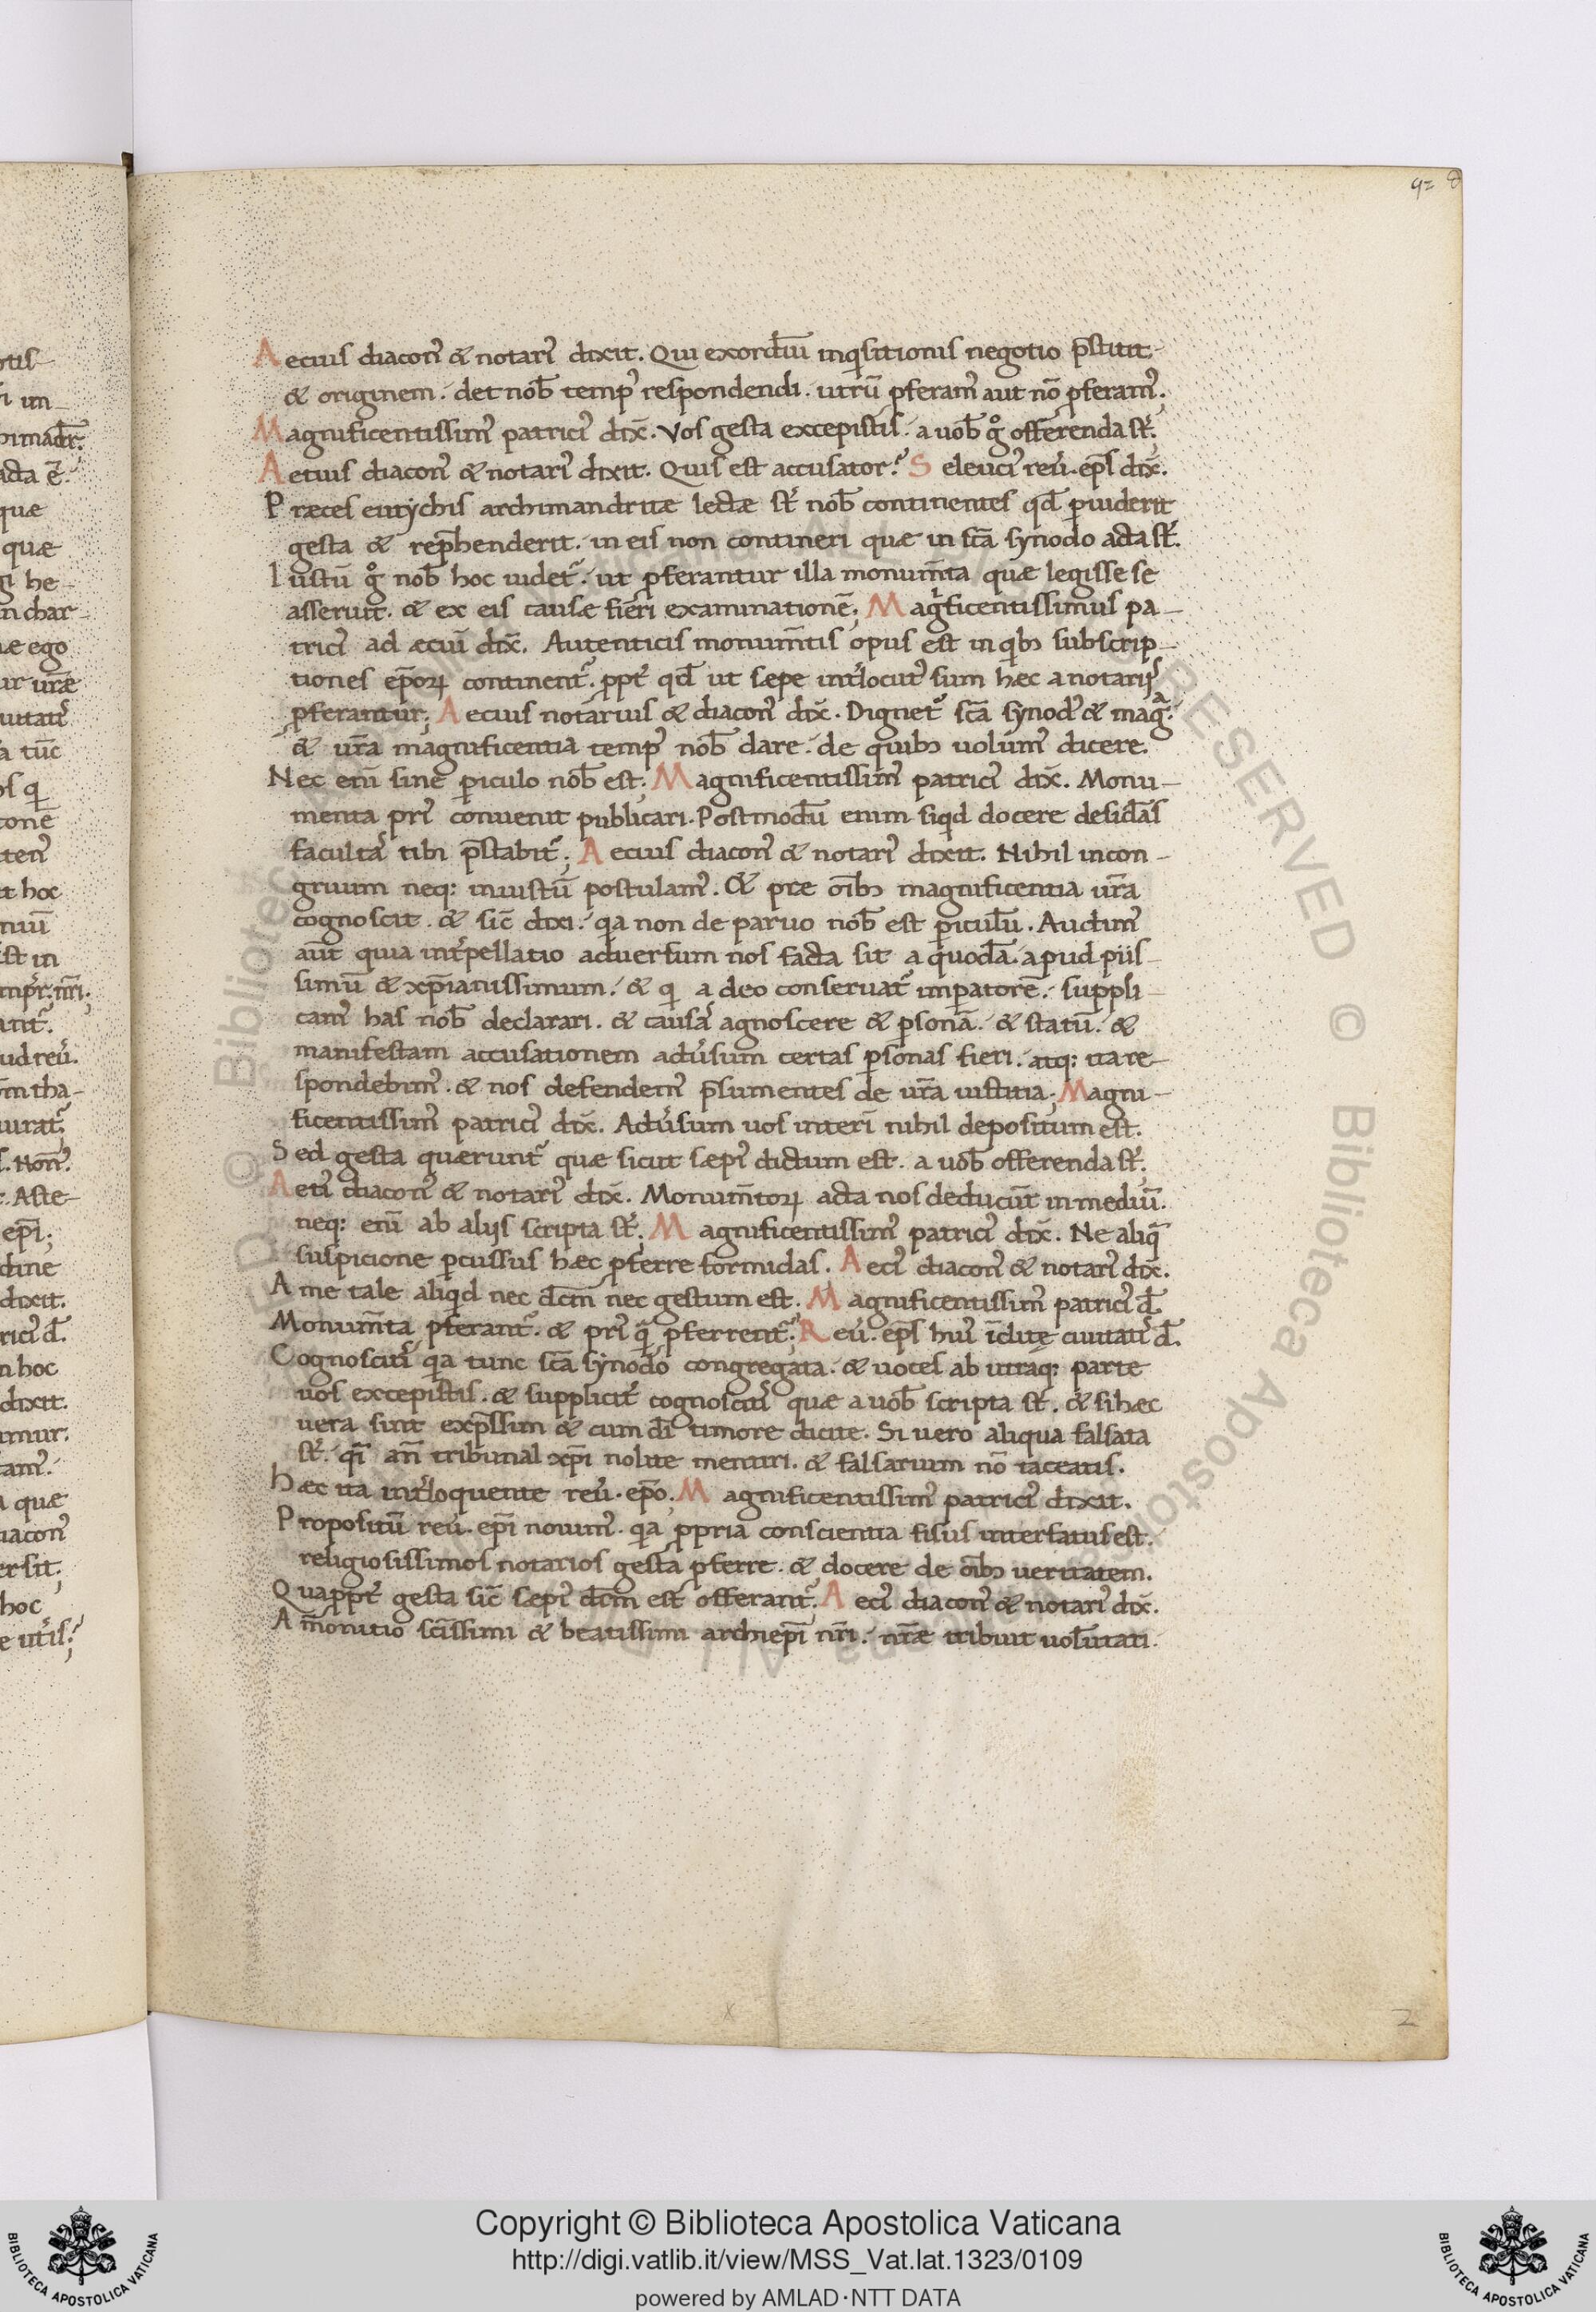 92 8
Aecius diacon᷒ & notari᷒ dixit. Qui exordiū inqisitionis negotio p̄stitit
& originem. det nob̄ temp᷒ respondendi. utrū pferam᷒ aut nō pferam᷒.
Magnificentissim᷒ patrici᷒ dix̄. Vos gesta excepistis. a uob̄ gͦ offerenda st᷒.
Aetius diacon᷒ & notari᷒ dixit. Quis est accusator? Seleuci᷒ reu᷒. ep̄s dix̄.
Præces eutychis archimandritæ lectæ st᷒ nob̄ continentes qd̄ puiderit
gesta & rep̄henderit. in eis non contineri quæ in sc̄a synodo acta st᷒.
Iustū gͦ nob̄ hoc uidet᷒. ut pferantur illa monum̄ta quæ legisse se
asseruit. & ex eis causæ fieri examinationē; Magͥficentissimus pa-
trici᷒ ad æciū dix̄. Autenticis monum̄tis opus est in qib; subscrip-
tiones ep̄oꝝ continent᷒. ppt᷒ qd̄ ut sepe int᷒locut᷒ sum hæc a notarijs
pferantur; Aecius notarius & diacon᷒ dix̄. Dignet᷒ sc̄a synod᷒ & mag̅ᵃ.
& ur̄a magnificentia temp᷒ nob̄ dare. de quib; uolum᷒ dicere.
Nec enī sine piculo nob̄ est; Magnificentissim᷒ patrici᷒ dix̄. Monu-
menta pri᷒ conuenit publicari. Postmodū enim siqd docere desid̄as
facultas tibi p̄stabit᷒; Aecius diacon᷒ & notari᷒ dixit. Nihil incon-
gruum neq: iniustū postulam᷒. & præ oīb; magnificentia ur̄a
cognoscit. & sic̄ dixi. qia non de paruo nob̄ est piculū. Audim᷒
aūt quia int᷒pellatio aduersum nos facta sit a quodā. apud piis-
simū & xp̄ianissimum. & qi a deo conseruat᷒ imperatorē. suppli-
cam᷒ has nob̄ declarari. & causā agnoscere & psonā. & statū. &
manifestam accusationem adu᷒sum certas psonas fieri. atq: ita re-
spondebim᷒. & nos defendem᷒ p̄sumentes de ur̄a iustitia; Magni-
ficentissim᷒ patrici᷒ dix̄. Adu᷒sum uos interī nihil depositum est.
Sed gesta quærunt᷒ quæ sicut sæpi᷒ dictum est. a uob̄ offerenda st᷒.
Aeti᷒ diacon᷒ & notari᷒ dix̄. Monum̄toꝝ acta nos deducūt in mediū.
neq: enī ab alijs scripta st᷒; Magnificentissim᷒ patrici᷒ dix̄. Ne aliqā
suspicione pcussus hæc pferre formidas. Aeci᷒ diacon᷒ & notari᷒ dix̄.
A me tale aliqid nec dc̄m nec gestum est. Magnificentissim᷒ patrici᷒ d̄.
Monum̄ta pferant᷒. & pri᷒ qā pferrent᷒; Reu᷒. ep̄s hui᷒ īclitę ciuitatis d̄.
Cognoscitis qia tunc sc̄a synodo congregata. & uoces ab utraq: parte
uos excepistis. & supplicit᷒ cognoscitis quæ a uob̄ scripta st᷒. & si hæc
uera sunt exp̄ssim & cum dī timore dicite. Si uero aliqua falsata
st᷒. qī an̄ tribunal xp̄i nolite mentiri. & falsarium nō taceatis.
Hæc ita int᷒loquente reu᷒. ep̄o. Magnificentissim᷒ patrici᷒ dixit.
Propositū reu᷒. ep̄i nouim᷒. qia ppria conscientia fisus interfatus est.
religiosissimos notarios gesta pferre. & docere de oīb; ueritatem.
Quappt᷒ gesta sic̄ sæpi᷒ dc̄m est offerant᷒. Aeci᷒ diacon᷒ & notari᷒ dix̄.
Am̄onitio sc̄issimi & beatissimi archiep̄i nr̄i. nr̄æ tribuit uolūtati.
2
Copyright © Biblioteca Apostolica Vaticana
http://digi.vatlib.it/view/MSS_Vat.lat.1323/0109
powered by AMLAD·NTT DATA